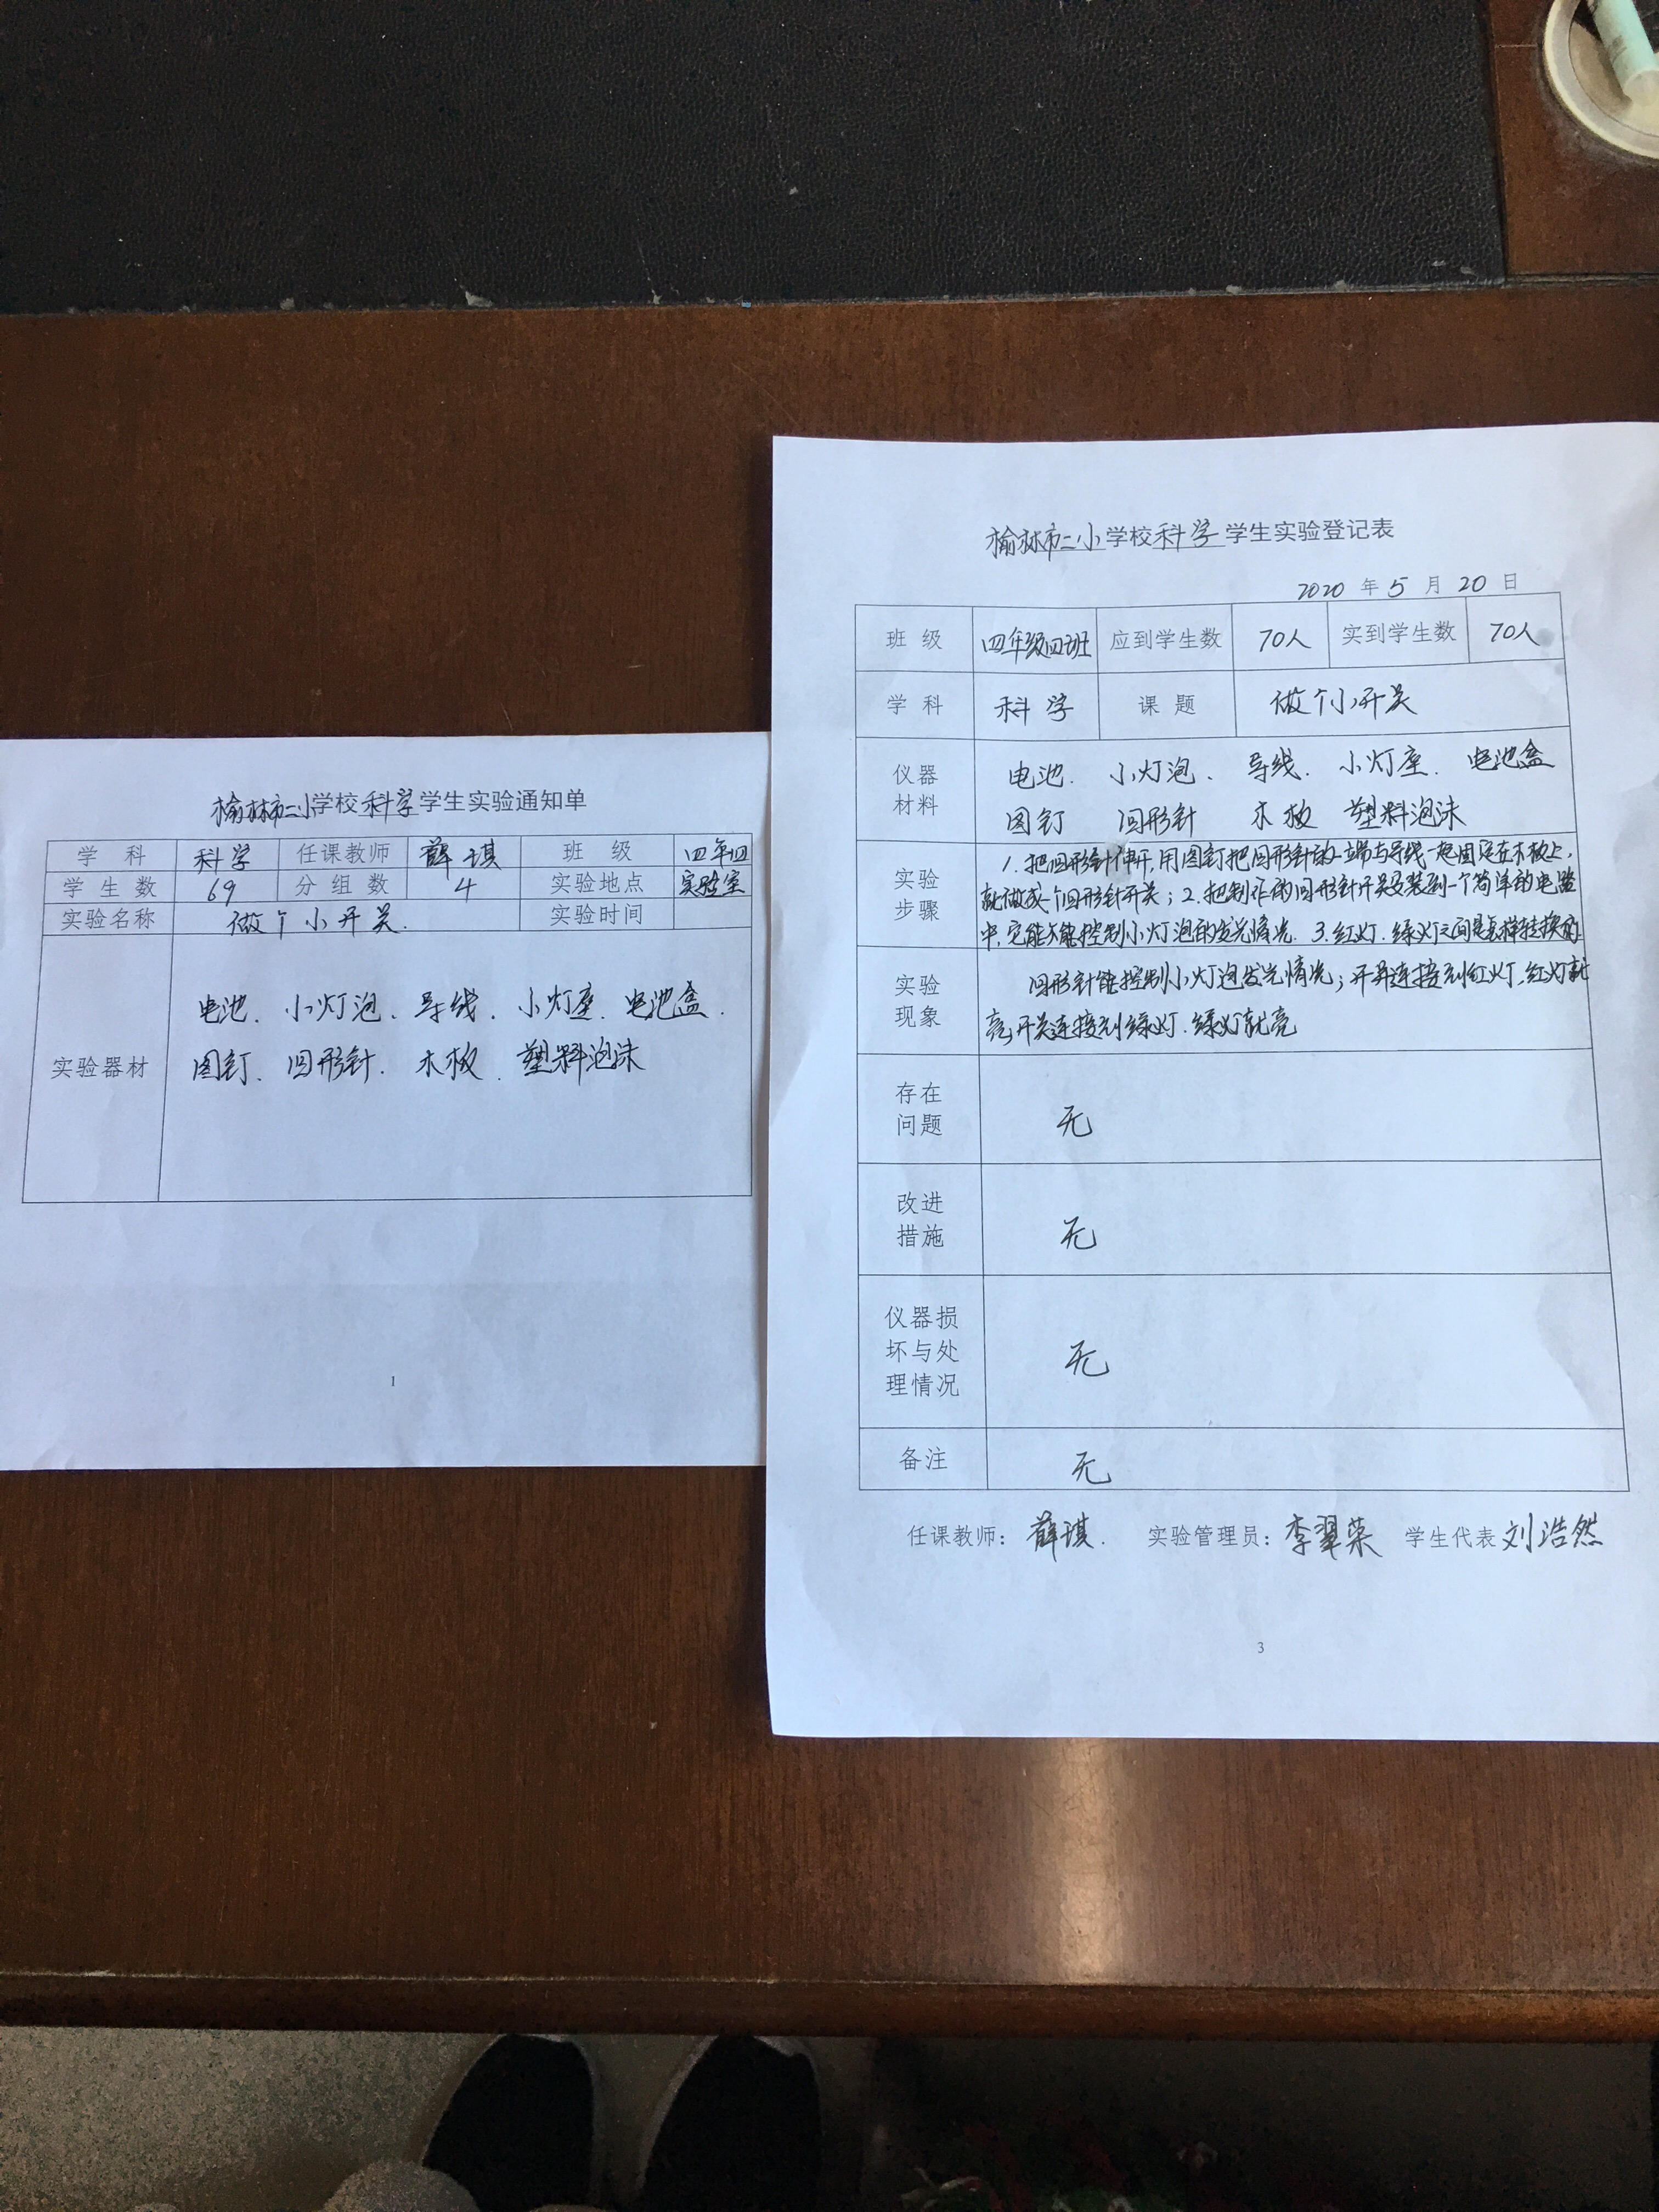 榆林市二小学校科学学生实验通知单
学科 科学 任课教师 薛琪 班级 四年四
学生数 69 分组数 4 实验地点 实验室
实验名称 做个小开关. 实验时间
电池、小灯泡、导线、小灯座、电池盒.
实验器材 图钉、回形针、木板、塑料泡沫
1
榆林市二小学校科学学生实验登记表
2020年5月20日
班级 四年级四班 应到学生数 70人 实到学生数 70人
学科 科学 课题 做个小开关
仪器材料 电池、小灯泡、导线、小灯座、电池盒
图钉 回形针 木板 塑料泡沫
实验步骤 1.把回形针伸开,用图钉把回形针的一端与导线一起固定在木板上,
就做成个回形针开关;2.把制作的回形针开关安装到一个简单的电路
中,它能不能控制小灯泡的发光情况.3.红灯、绿灯之间是怎样转换的
实验现象 回形针能控制小灯泡发光情况;开关连接到红灯,红灯就
亮,开关连接到绿灯、绿灯就亮
存在问题 无
改进措施 无
仪器损坏与处理情况 无
备注 无
任课教师:薛琪. 实验管理员:李翠荣 学生代表 刘浩然
3